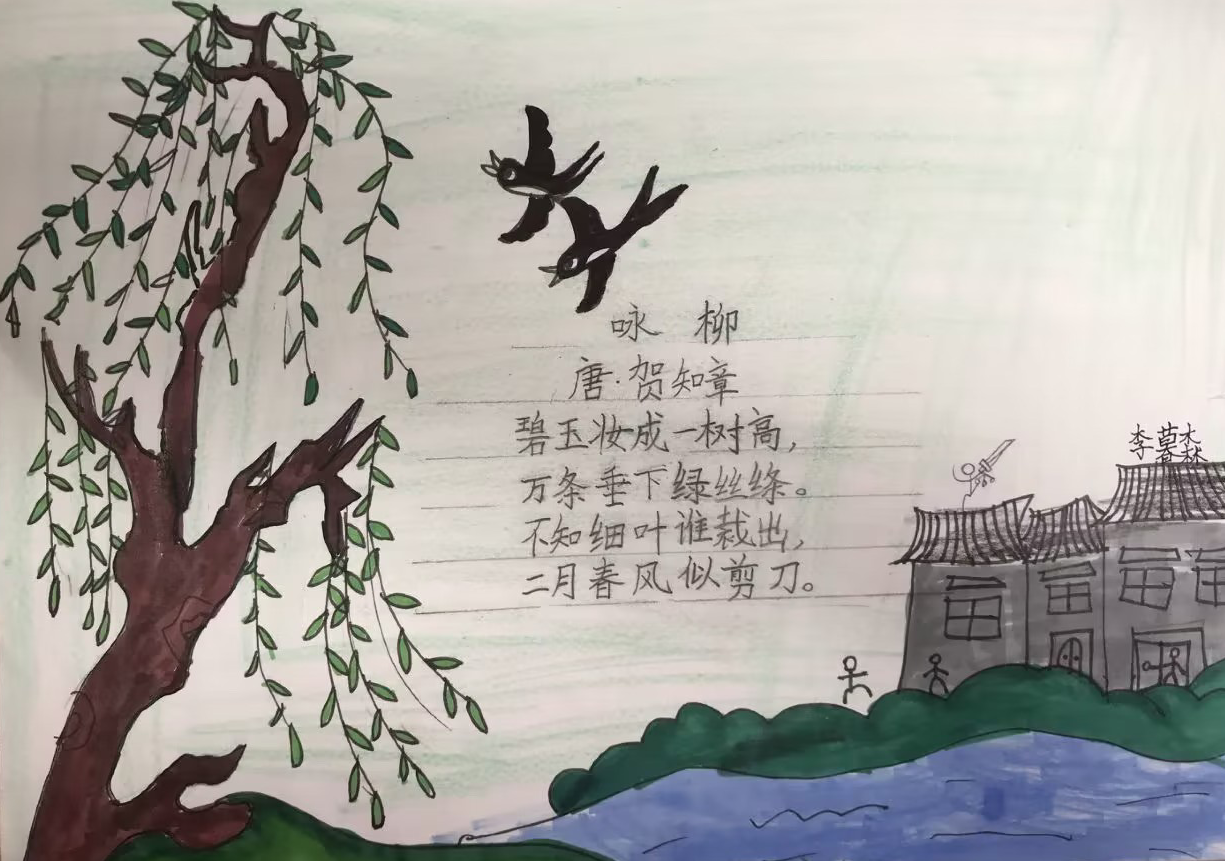 咏 柳
唐·贺知章
碧玉妆成一树高，
万条垂下绿丝绦。
不知细叶谁裁出，
二月春风似剪刀。
李暮森